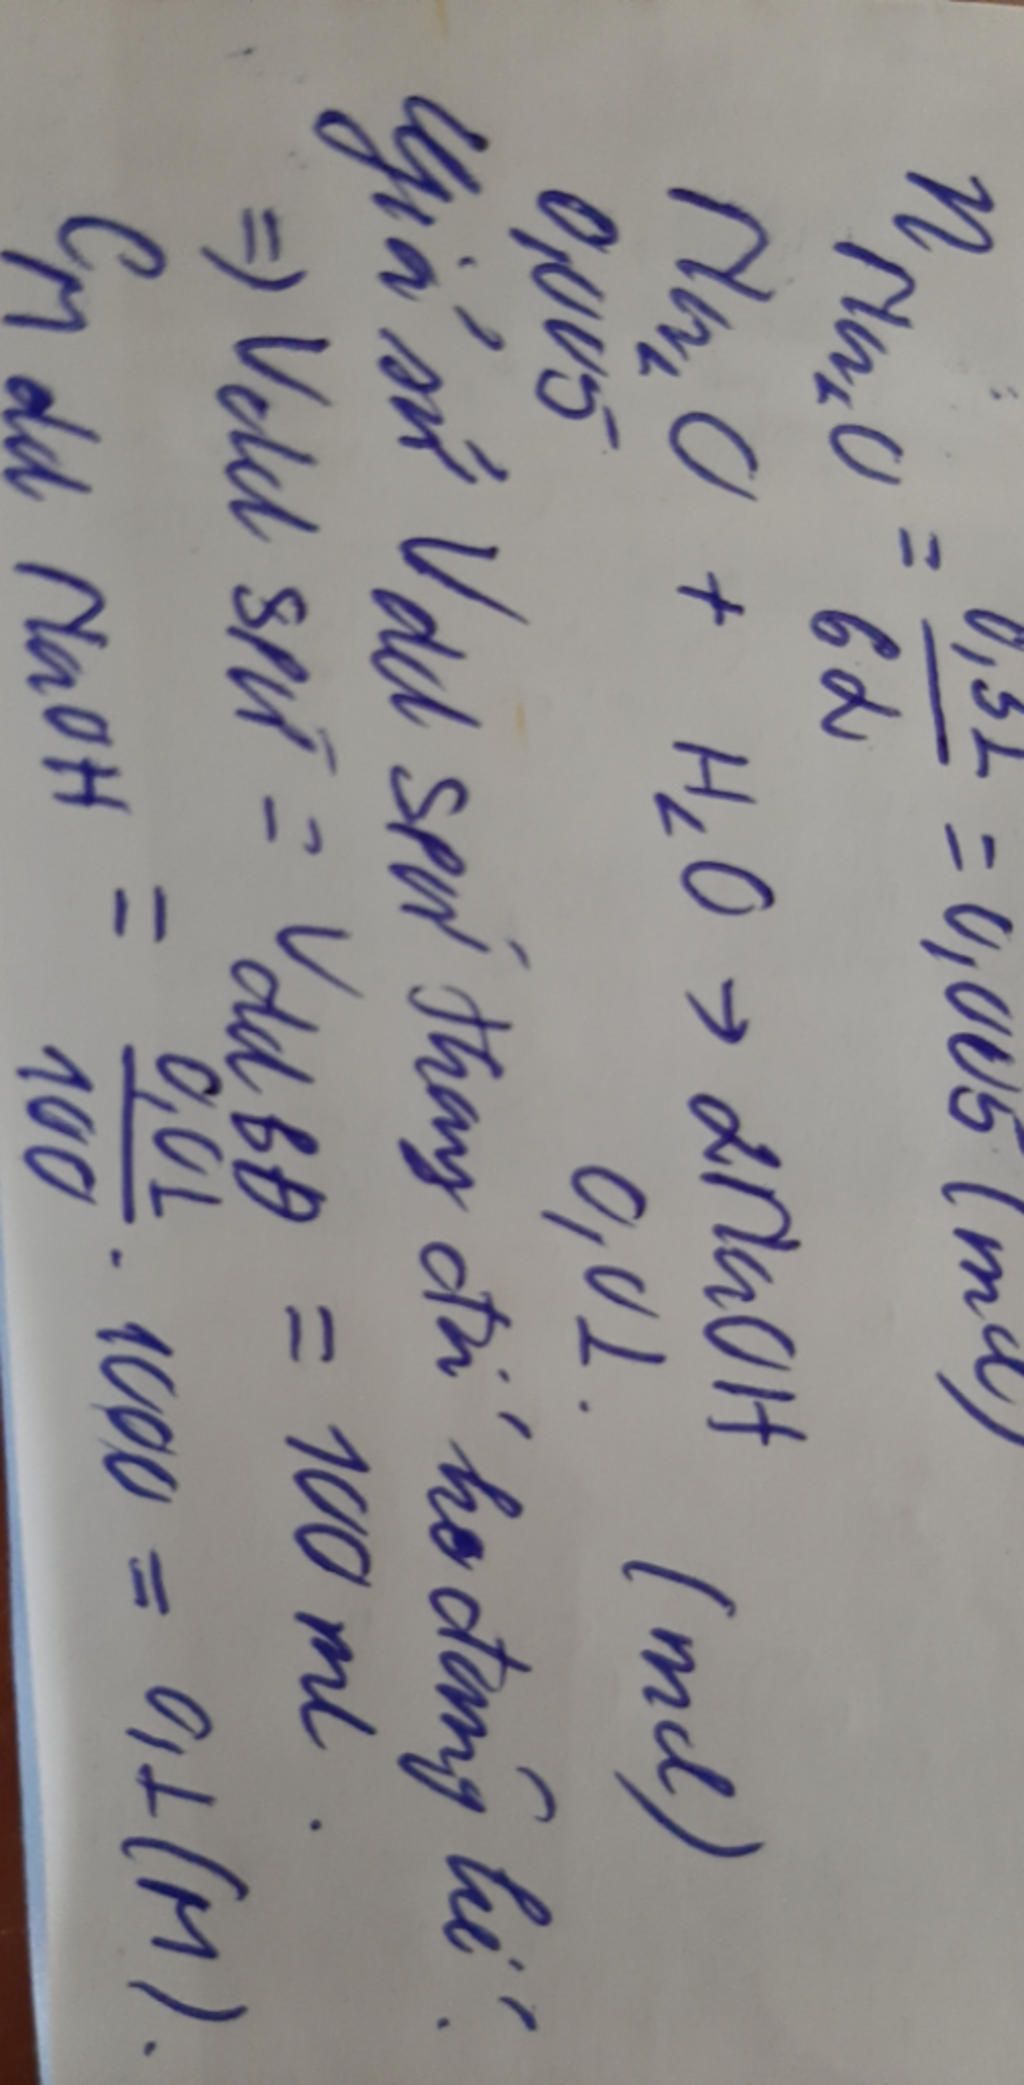 n Na2O = 0,31 / 62 = 0,005 (mol)
Na2O + H2O → 2NaOH (mol)
0,005 0,01.
Giả sử Vdd spứ thay đổi ko đáng kể.
=) Vdd spứ = Vdd BĐ = 100 ml.
CM dd NaOH = 0,01 / 100 . 1000 = 0,1 (M).